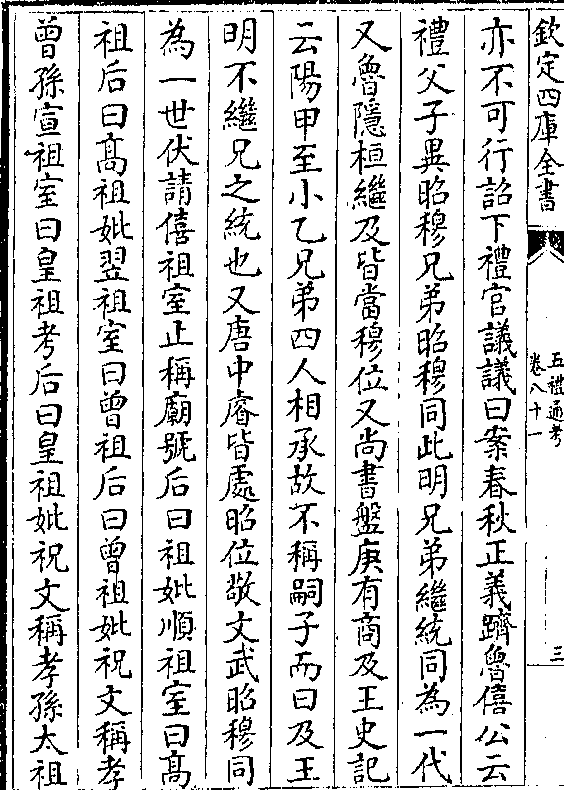 欽定四庫全書
五禮通考
卷八十一
三
亦不可行詔下禮官議議曰案春秋正義躋魯僖公云
禮父子異昭穆兄弟昭穆同此明兄弟繼統同為一代
又魯隱桓繼及皆當穆位又尚書盤庚有商及王史記
云陽甲至小乙兄弟四人相承故不稱嗣子而曰及王
明不繼兄之統也又唐中睿皆處昭位敬文武昭穆同
為一世伏請僖祖室止稱廟號后曰祖妣順祖室曰髙
祖后曰髙祖妣翌祖室曰曾祖后曰曾祖妣祝文稱孝
曾孫宣祖室曰皇祖考后曰皇祖妣祝文稱孝孫太祖